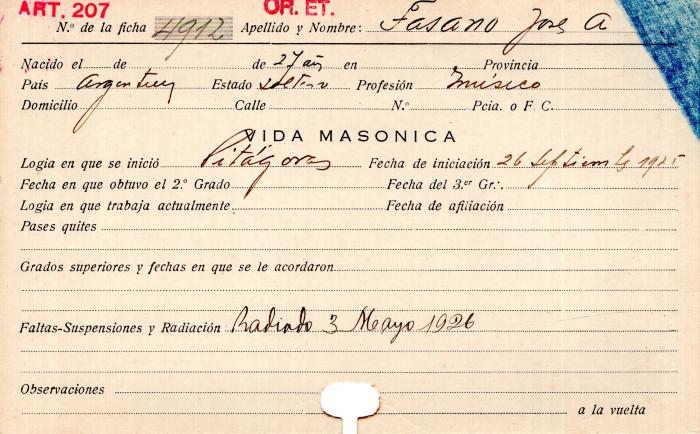 ART. 207 OR. ET.
N.º de la ficha 4912 Apellido y Nombre: Fasano José A
Nacido el de de 27 añ en Provincia
País Argentin Estado soltero Profesión Músico
Domicilio Calle N.º Pcia. o F. C.
VIDA MASONICA
Logia en que se inició Pitágoras Fecha de iniciación 26 Septiembre 1925
Fecha en que obtuvo el 2.º Grado Fecha del 3.er Gr.:
Logia en que trabaja actualmente Fecha de afiliación
Pases quites
Grados superiores y fechas en que se le acordaron
Faltas-Suspensiones y Radiación Radiado 3 Mayo 1926
Observaciones
a la vuelta